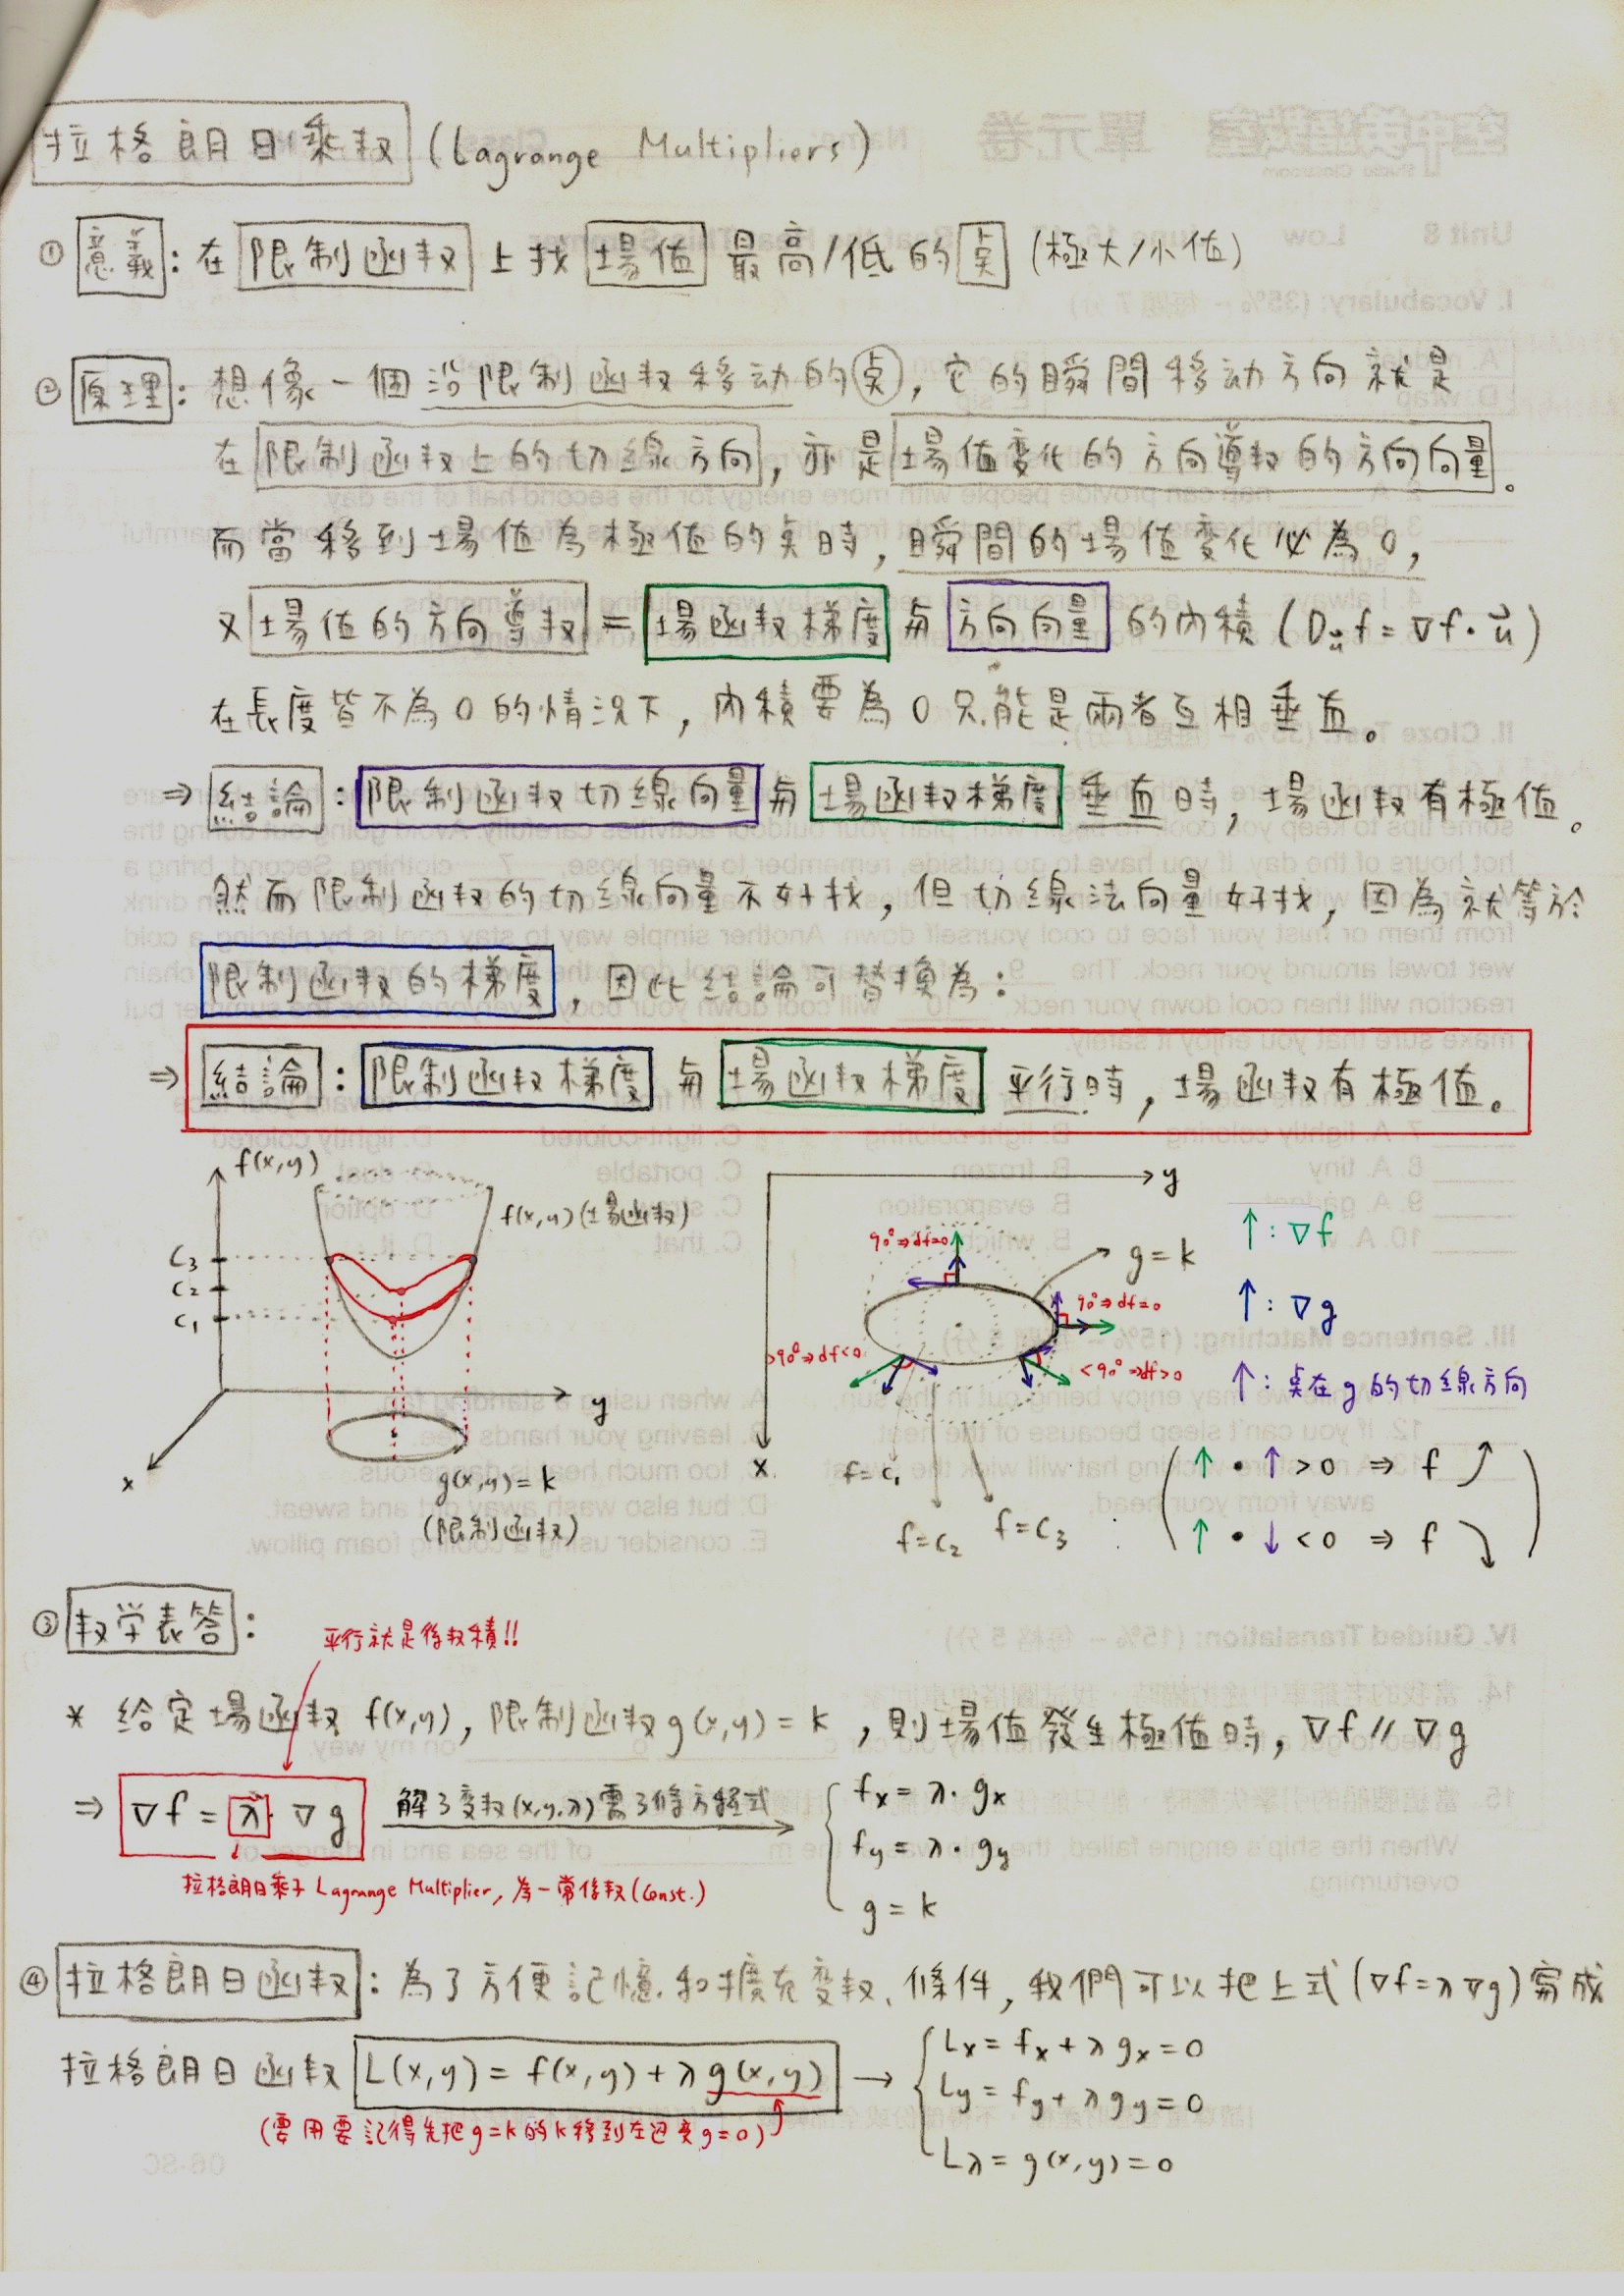 拉格朗日乘数 (Lagrange Multipliers)
① 意義：在 限制函数 上找 場值 最高/低的 点 (極大/小值)
② 原理：想像一個沿限制函数移动的点，它的瞬間移动方向就是
在 限制函数上的切線方向，亦是 場值变化的方向導数的方向向量。
而當移到場值為極值的点時，瞬間的場值变化必為0，
又 場值的方向導数 = 場函数梯度 与 方向向量 的內積 (Dᵤf = ∇f · u⃗)
在長度皆不為0的情況下，內積要為0只能是兩者互相垂直。
⇒ 結論：限制函数切線向量 与 場函数梯度 垂直時，場函数有極值。
然而限制函数的切線向量不好找，但切線法向量好找，因為就等於
限制函数的梯度，因此結論可替換為：
⇒ 結論：限制函数梯度 与 場函数梯度 平行時，場函数有極值。
f(x,y)
f(x,y) (場函数)
C₃
C₂
C₁
y
x
g(x,y) = k
(限制函数)
y
x
90° ⇒ df=0
g = k
90° ⇒ df=0
>90° ⇒ df<0
<90° ⇒ df>0
f=C₁
f=C₂
f=C₃
↑：∇f
↑：∇g
↑：点在g的切線方向
(↑ • ↑ > 0 ⇒ f ⤴
↑ • ↓ < 0 ⇒ f ⤵)
③ 数学表答：
平行就是係数積!!
* 给定場函数 f(x,y)，限制函数 g(x,y) = k，則場值發生極值時，∇f // ∇g
⇒ ∇f = λ · ∇g 解3变数(x,y,λ)需3條方程式
fx = λ · gx
fy = λ · gy
g = k
拉格朗日乘子 Lagrange Multiplier, 為一常係数 (Const.)
④ 拉格朗日函数：為了方便記憶和擴充变数、條件，我們可以把上式 (∇f = λ∇g) 寫成
拉格朗日函数 L(x,y) = f(x,y) + λ g(x,y) →
(要用要記得先把g=k的k移到左边变g=0)
Lx = fx + λ gx = 0
Ly = fy + λ gy = 0
Lλ = g(x,y) = 0